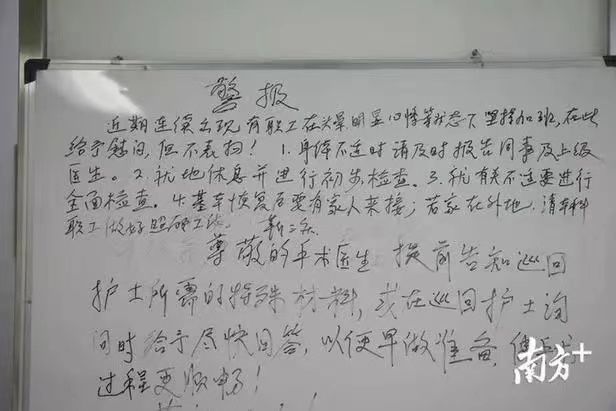 警报
近期连续出现有职工在头晕明显心悸等状态下坚持加班,在此
给予慰问,但不表扬! 1.身体不适时请及时报告同事及上级
医生。2.就地休息并进行初步检查。3.就有关不适要进行
全面检查。4.基本恢复后要有家人来接;若家在外地,请本科
职工做好照顾工作。
尊敬的手术医生 提前告知巡回
护士所需的特殊材料,或在巡回护士询
问时给予尽快回答,以便早做准备,使手术
过程更顺畅!
南方+